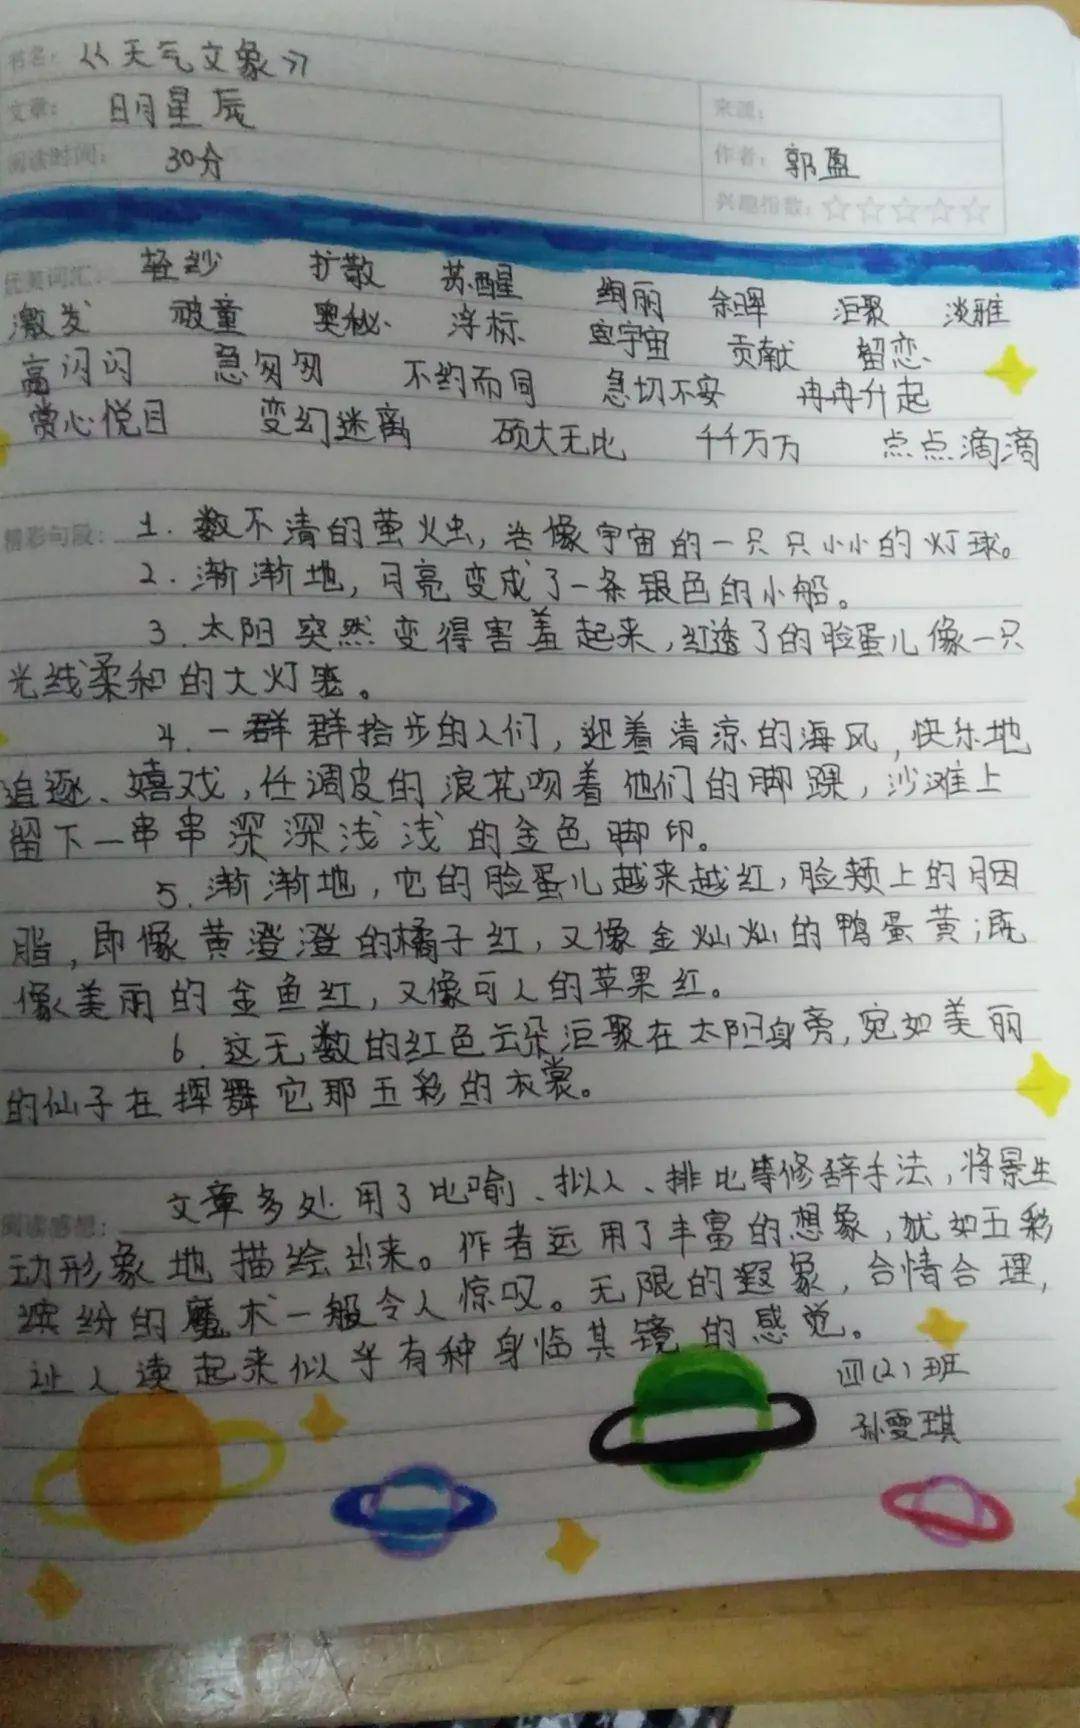 书名: 《天气文象》
文章: 日月星辰
来源:
阅读时间: 30分
作者: 郭盈
兴趣指数: ☆☆☆☆☆
优美词汇: 轻纱 扩散 苏醒 绚丽 余晖 汇聚 淡雅
激发 破 奥秘 浮标 宇宙 贡献 留恋
亮闪闪 急匆匆 不约而同 急切不安 冉冉升起
赏心悦目 变幻迷离 硕大无比 千千万万 点点滴滴
精彩句段: 1. 数不清的萤火虫,岩像宇宙的一只只小小的灯球。
2. 渐渐地,月亮变成了一条银色的小船。
3. 太阳突然变得害羞起来,红透了的脸蛋儿像一只
光线柔和的大灯笼。
4. 一群群拾步的人们,迎着清凉的海风,快乐地
追逐、嬉戏,任调皮的浪花吻着他们的脚踝,沙滩上
留下一串串深深浅浅的金色脚印。
5. 渐渐地,它的脸蛋儿越来越红,脸颊上的胭
脂,即像黄澄澄的橘子红,又像金灿灿的鸭蛋黄;既
像美丽的金鱼红,又像可人的苹果红。
6. 这无数的红色云朵汇聚在太阳身旁,宛如美丽
的仙子在挥舞它那五彩的衣裳。
文章多处用了比喻、拟人、排比等修辞手法,将景生
阅读感想:
动形象地描绘出来。作者运用了丰富的想象,犹如五彩
缤纷的魔术一般令人惊叹。无限的遐象,合情合理,
让人读起来似乎有种身临其镜的感觉。
四(2)班
孙雯琪